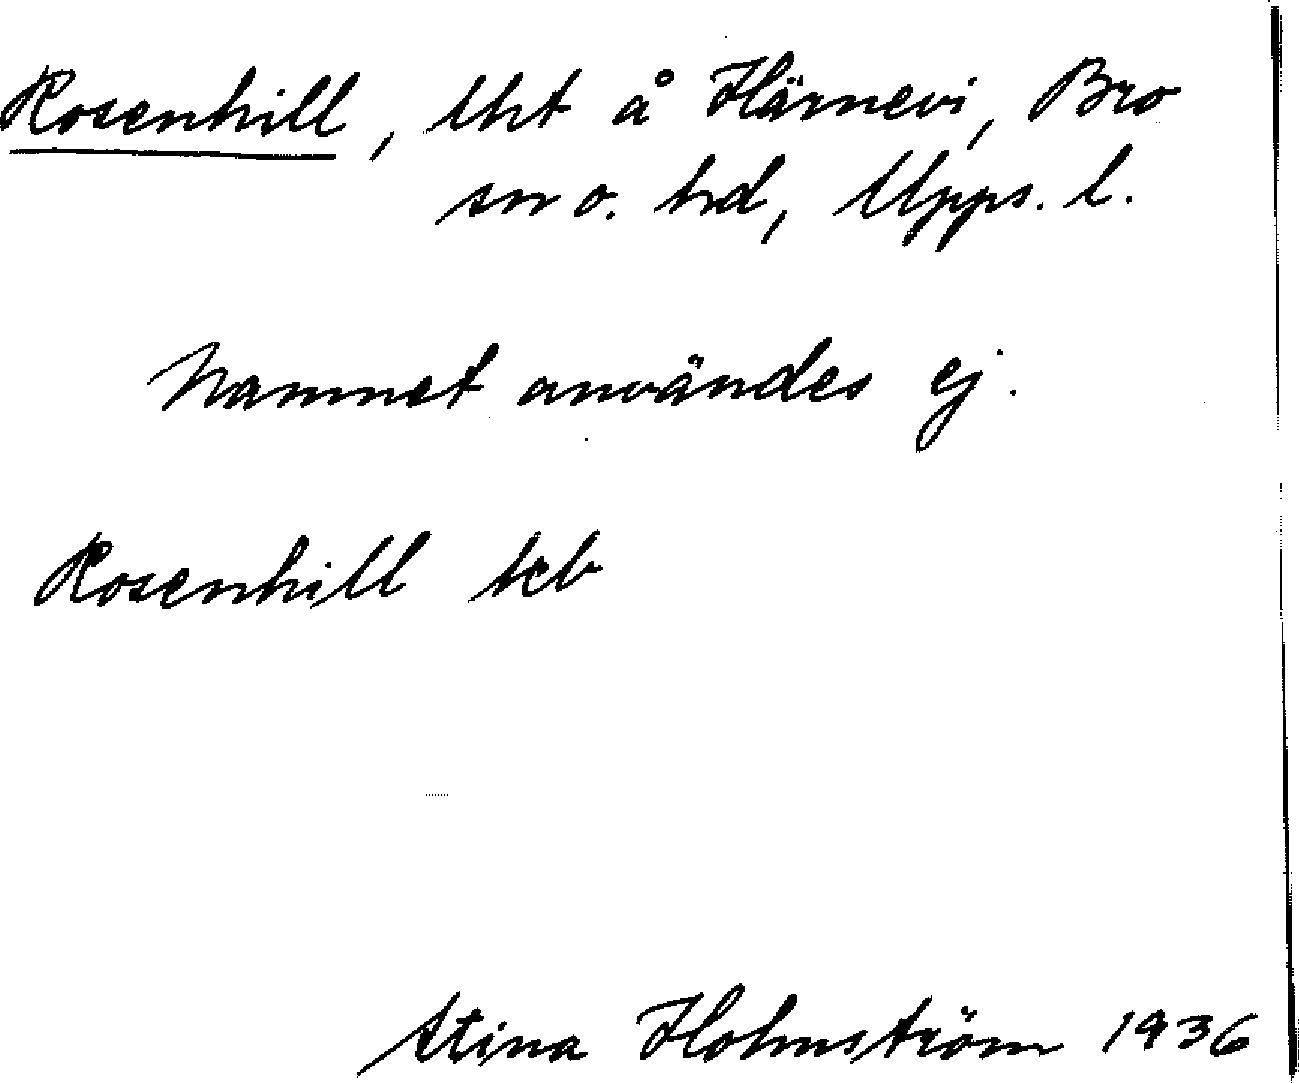 Rosenhill, lht å Härnevi, Bro
sn o. hd, Upps. l.
Namnet användes ej.
Rosenhill
Stina Holmström 1936